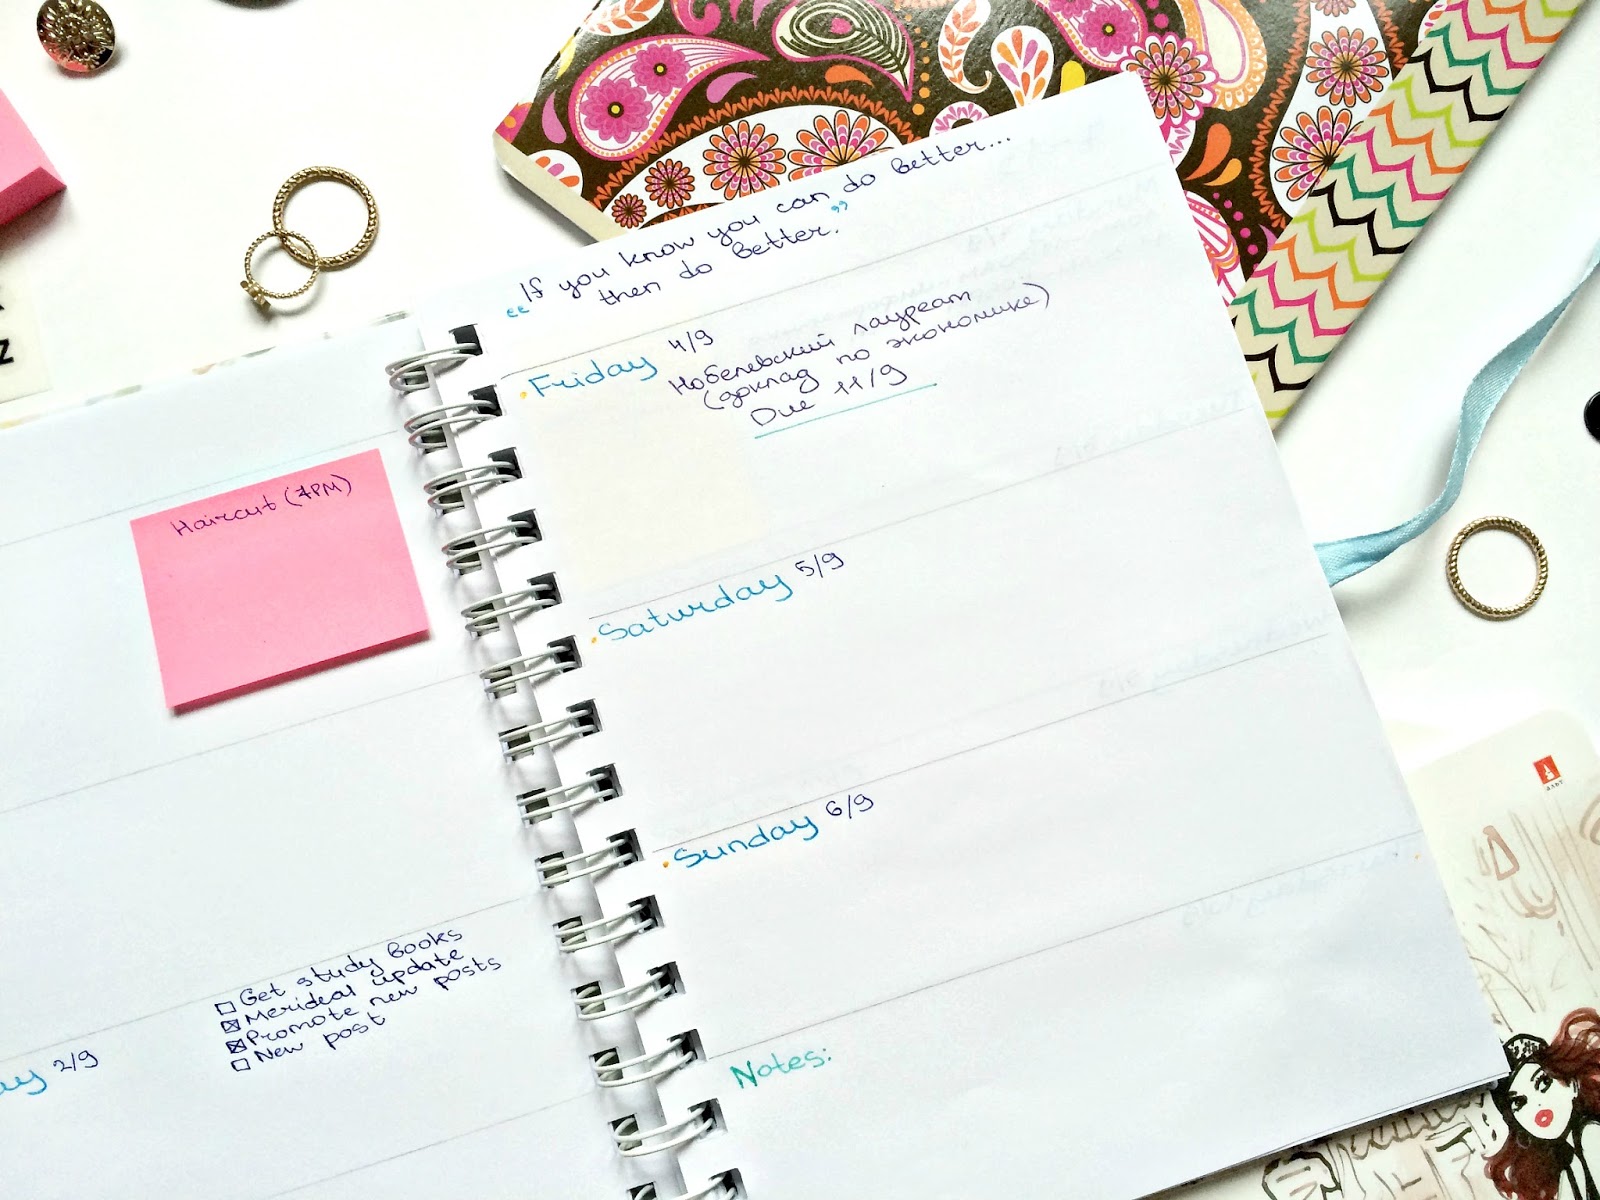 Haircut (7PM)
Get study books
Merideal update
Promote new posts
New post
ay 2/9
“If you know you can do better...
then do better.”
Friday 4/9
Нобелевский лауреат
(доклад по экономике)
Due 11/9
Saturday 5/9
Sunday 6/9
Notes:
Z